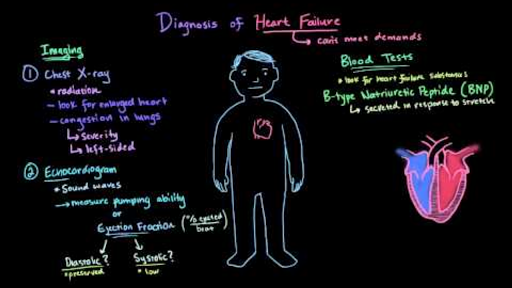 Diagnosis of Heart Failure
can't meet demands
Imaging
① Chest X-ray
* radiation
- look for enlarged heart
- congestion in lungs
↳ severity
↳ left-sided
② Echocardiogram
* Sound waves
→ measure pumping ability
or
Ejection Fraction (% ejected
Diastolic? Systolic?
* preserved * low
Blood Tests
* look for heart failure substances
B-type Natriuretic Peptide (BNP)
↳ secreted in response to stretch